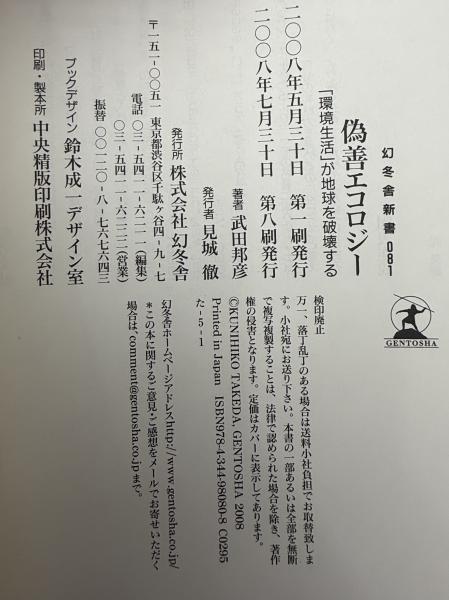 幻冬舎新書 081
偽善エコロジー
「環境生活」が地球を破壊する
二〇〇八年五月三十日　第一刷発行
二〇〇八年七月三十日　第八刷発行
著者 武田邦彦
発行者 見城 徹
発行所 株式会社 幻冬舎
〒一五一-〇〇五一 東京都渋谷区千駄ヶ谷四-九-七
電話 〇三-五四一一-六二一一(編集)
〇三-五四一一-六二二二(営業)
振替 〇〇一二〇-八-七六七六四三
ブックデザイン 鈴木成一デザイン室
印刷・製本所 中央精版印刷株式会社
GENTOSHA
検印廃止
万一、落丁乱丁のある場合は送料小社負担でお取替致しま
す。小社宛にお送り下さい。本書の一部あるいは全部を無断
で複写複製することは、法律で認められた場合を除き、著作
権の侵害となります。定価はカバーに表示してあります。
©KUNIHIKO TAKEDA, GENTOSHA 2008
Printed in Japan ISBN978-4-344-98080-8 C0295
た-5-1
幻冬舎ホームページアドレスhttp://www.gentosha.co.jp/
*この本に関するご意見・ご感想をメールでお寄せいただく
場合は、comment@gentosha.co.jpまで。